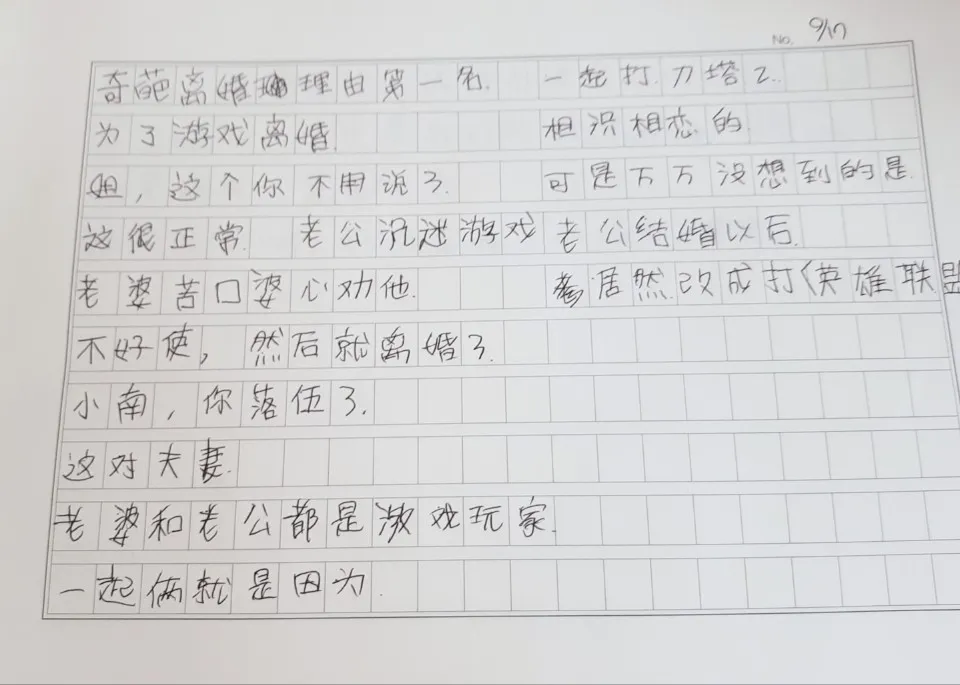 No. 9/17
奇葩离婚理由第一名.
为了游戏离婚.
姐，这个你不用说了.
这很正常. 老公沉迷游戏
老婆苦口婆心劝他.
不好使，然后就离婚了.
小南，你落伍了.
这对夫妻.
老婆和老公都是游戏玩家.
一起俩就是因为.
一起打刀塔2.
相识相恋的.
可是万万没想到的是.
老公结婚以后.
居然改成打《英雄联盟